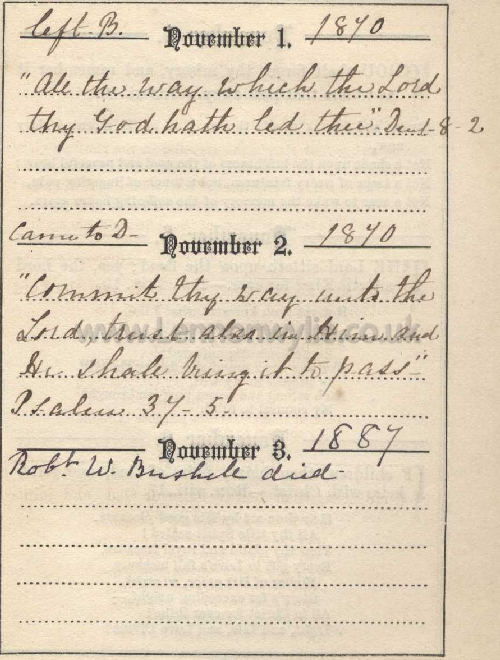 left B. November 1. 1870
"All the way which the Lord
thy God hath led thee" Deut-8-2
Came to D- November 2. 1870
"Commit thy way unto the
Lord, trust also in Him and
He shall bring it to pass"
Psalm 37-5
November 3. 1887
Robt W. Bushell died